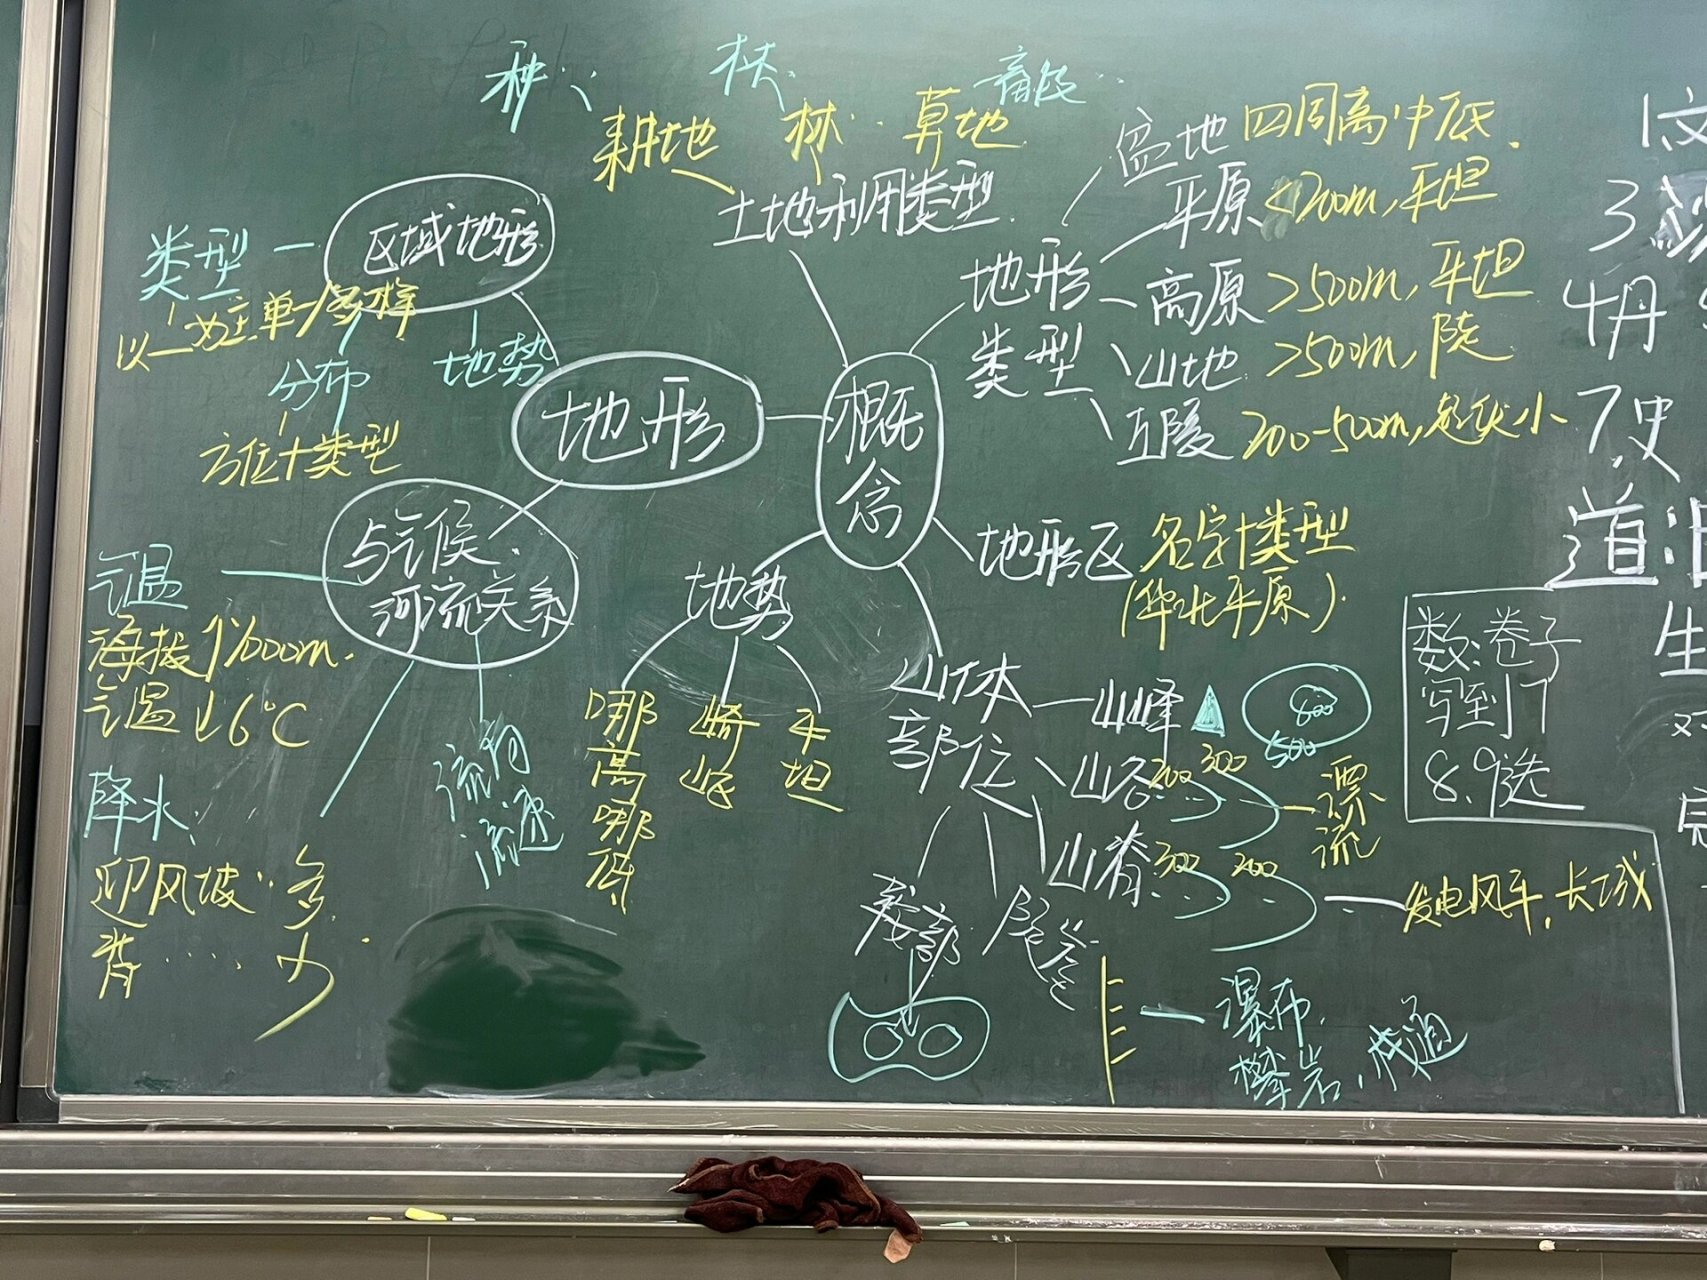 种∵ 林∵ 畜牧∵
耕地 林∵ 草地
土地利用类型
盆地 四周高中低
平原 <200m,平坦
地形类型
高原 >500m,平坦
山地 >500m,陡
丘陵 200-500m,起伏小
区域地形
类型
以_为主 单一/多样
分布
地势
方位+类型
地形
概念
地形区 名字+类型
(华北平原)
与气候、
河流关系
气温
海拔↑1000m.
气温↓6℃
降水:
迎风坡∵多.
背……少
流向
流速
地势
哪高哪低
崎岖
平坦
山体
部位
山峰 ▲ 800
500
山谷 200 300
漂流
山脊 300 200
发电风车,长城
鞍部
陡崖
瀑布,
攀岩,栈道
3
4丹
7.史
道:
生
数:卷子
写到17
8.9选